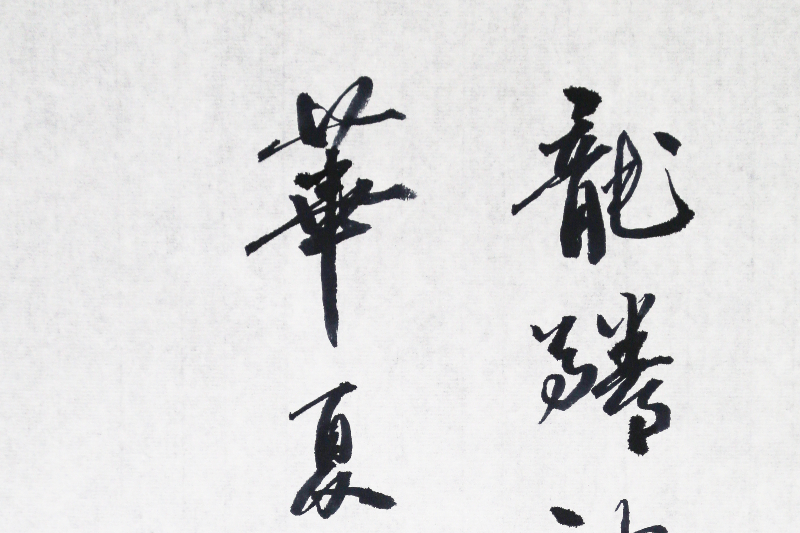 龍騰
華夏